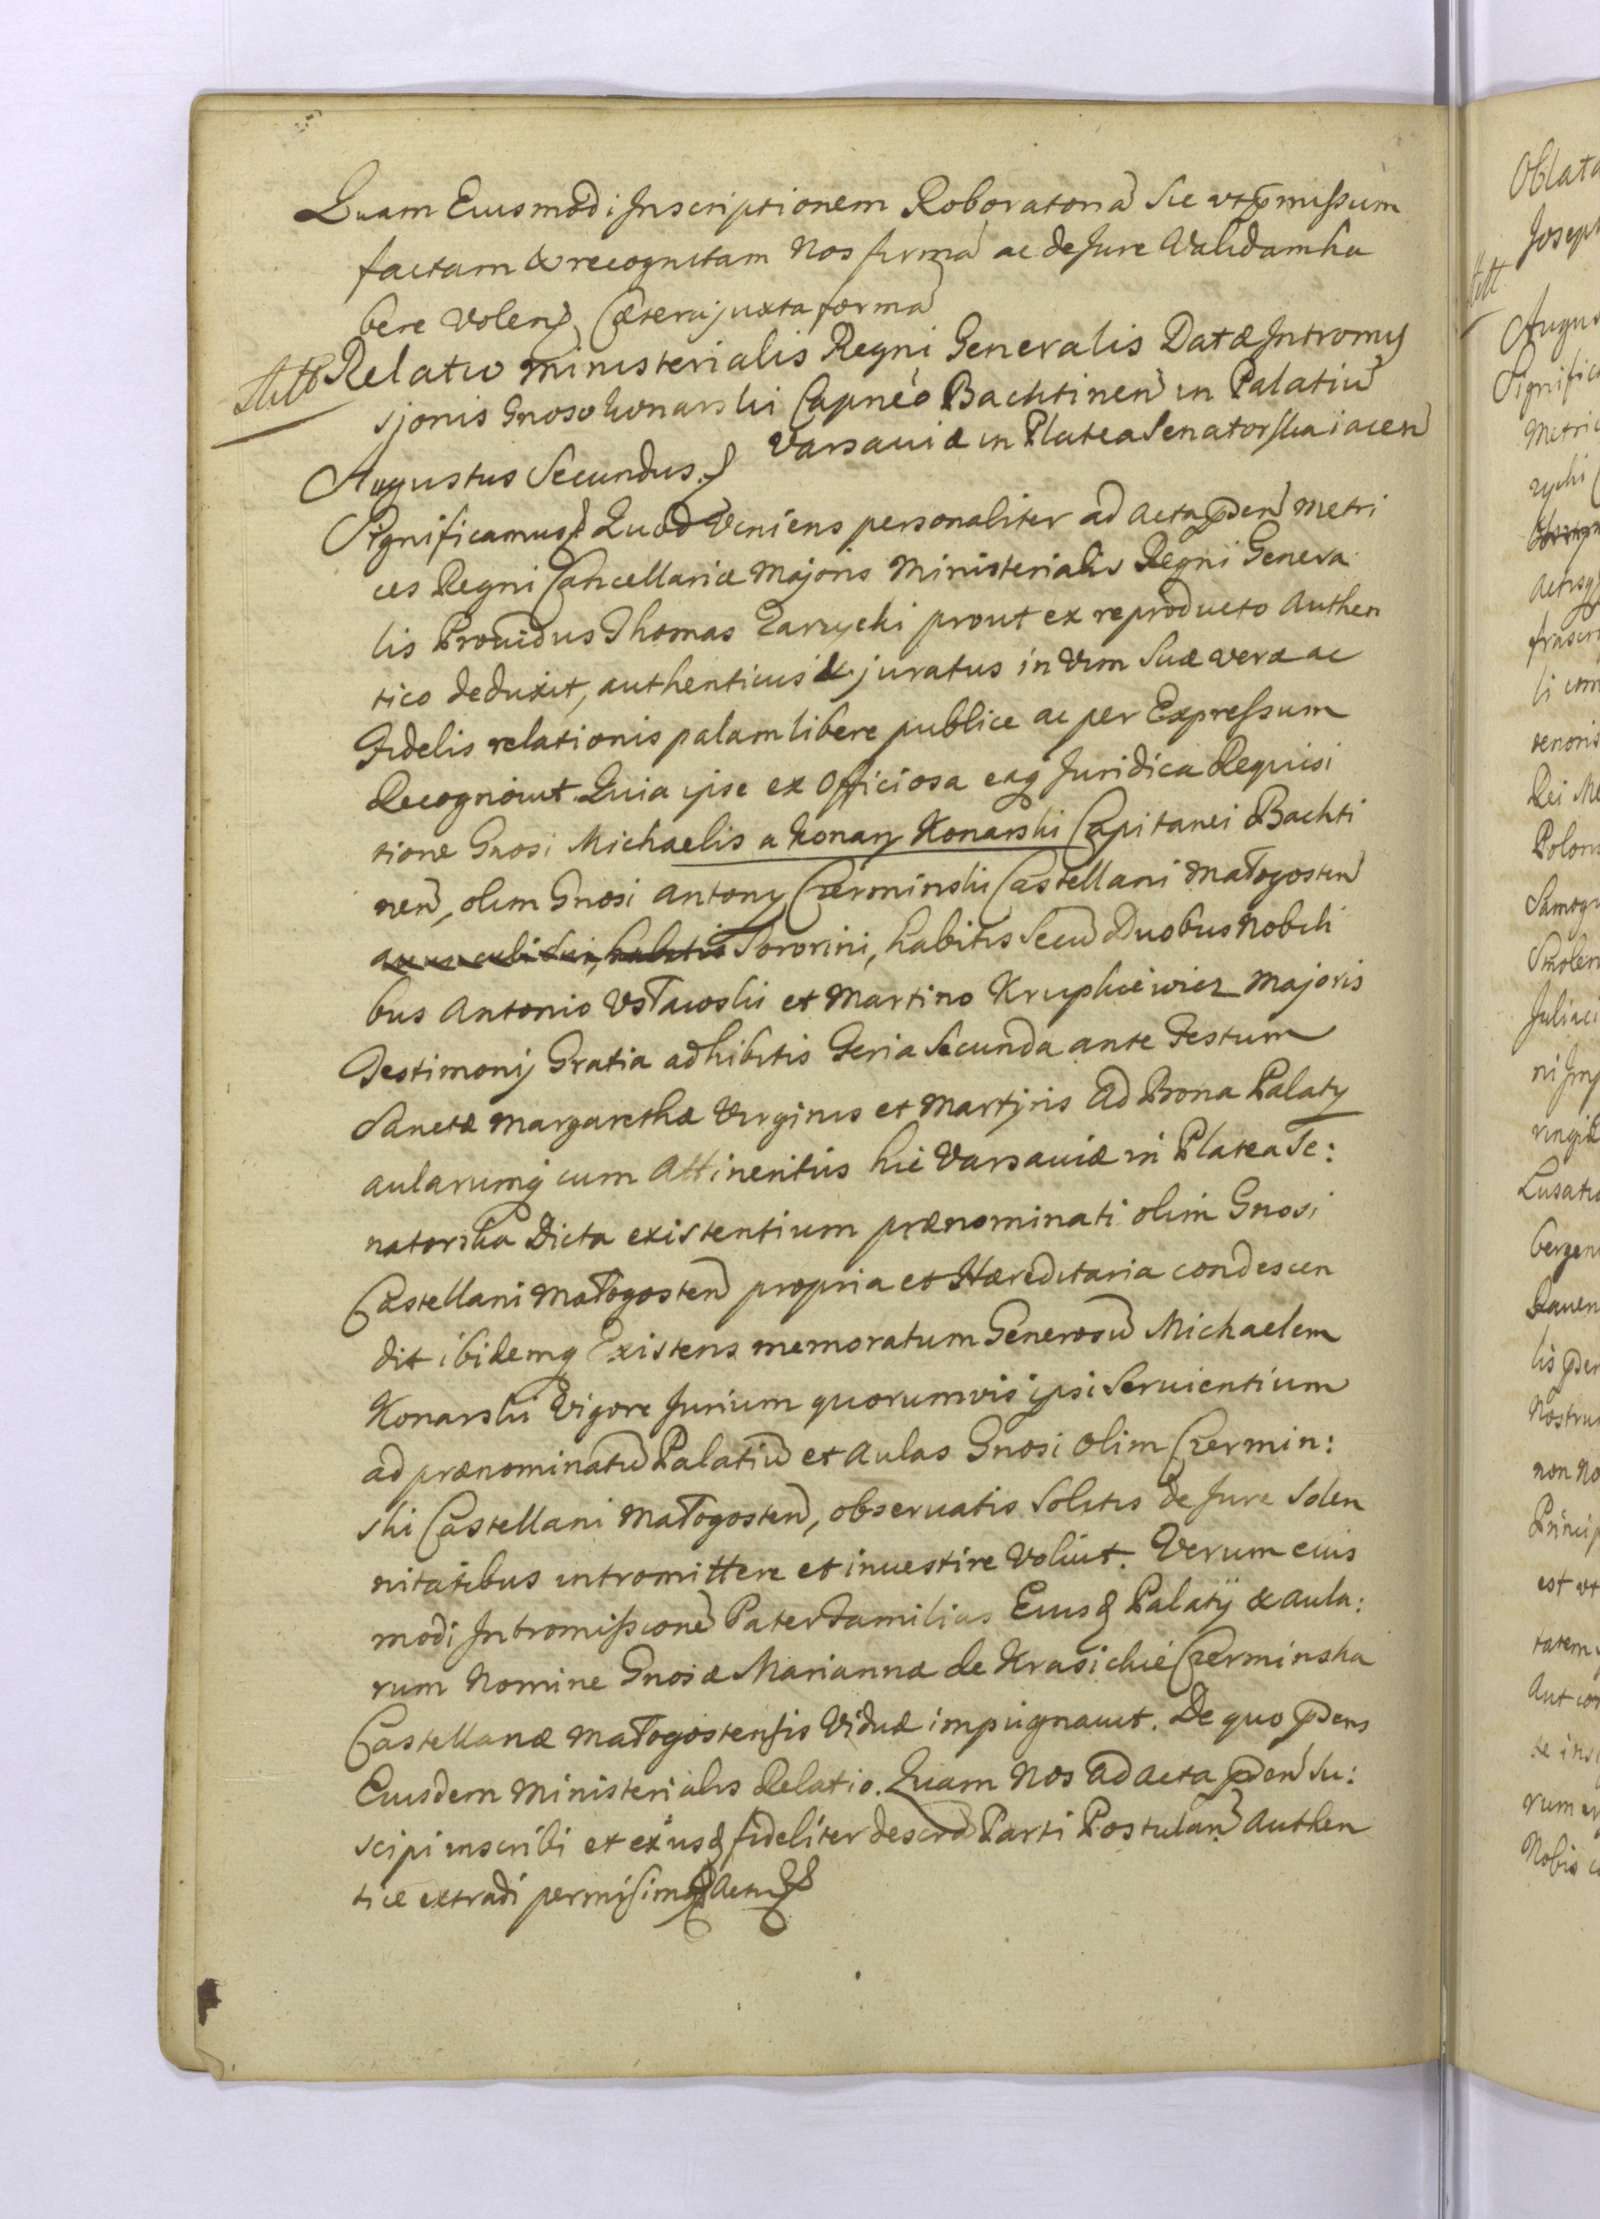 Quam Eiusmodi Inscriptionem Roboratoria Sic ut pmissum
factam & recognitam Nos firma ac de Jure Validam ha
bere Volen, Cætera juxta forma
Relatio Ministerialis Regni Generalis Datæ Intromis
sjonis Gnoso Konarski Capneo Bachtinen in Palatiu
Varsauiæ in Platea Senatorska iacen
Augustus Secundus
Significamus Quod Veniens personaliter ad Acta pden Metri
ces Regni Cancellariæ Majoris Ministerialis Regni Genera
lis Prouidus Thomas Zarzycki prout ex reproducto Authen
tico deduxit, authenticus & juratus in Vim Suæ veræ ac
Fidelis relationis palam libere publice ac per Expressum
Recognouit. Quia ipse ex Officiosa eaq Juridica Requisi
tione Gnosi Michaelis a Konary Konarski Capitanei Bachti
nen, olim Gnosi Antonij Czerminski Castellani Małogosten
Sororini, habitis Secu Duobus Nobili
bus Antonio Ustawski et Martino Krupkiewicz Majoris
Testimonij Gratia adhibitis Feria Secunda ante Festum
Sanctæ Margarethæ Virginis et Martyris Ad Bona Palatij
aularumq cum Attinentiis hic Varsauiæ in Platea Se:
natorska Dicta existentium prænominati olim Gnosi
Castellani Małogosten propria et Hæreditaria condescen
dit ibidemq Existens memoratum Generosu Michaelem
Konarski Vigore Jurium quorumvis ipsi Seruientium
ad prænominatu Palatiu et Aulas Gnosi olim Czermin:
ski Castellani Małogosten, obseruatis Solitis de Jure Solen
nitatibus intromittere et inuestire Voluit. Verum eius
modi Intromissione Paterfamilias Eiusd Palatij & aula:
rum Nomine Gnosæ Mariannæ de Krasickie Czerminska
Castellanæ Małogostensis Viduæ impugnauit. De quo pdens
Eiusdem Ministerialis Relatio. Quam Nos ad Acta pden Su:
scipi inscribi et ex iisd fideliter descrà Parti Postulan Authen
tice extradi permisimus Actu